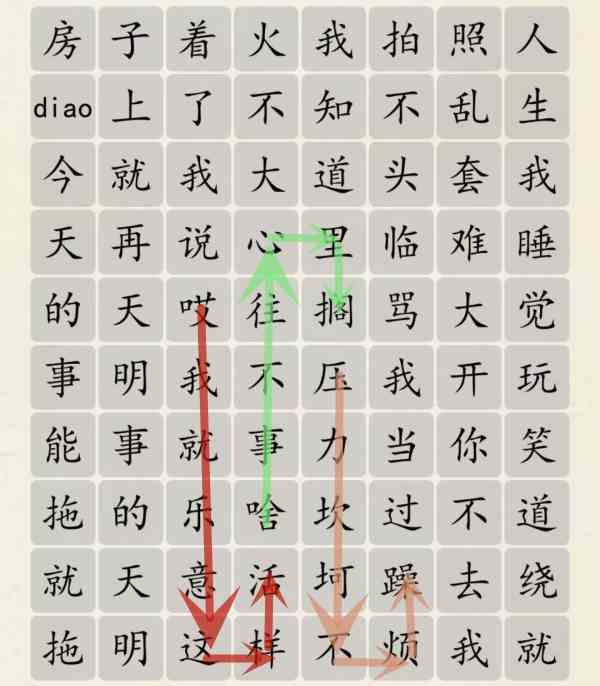 房子着火我拍照人
diao上了不知不乱生
今就我大道头套我
天再说心里临难睡
的天哎往搁骂大觉
事明我不压我开玩
能事就事力当你笑
拖的乐啥坎过不道
就天意活坷躁去绕
拖明这样不烦我就